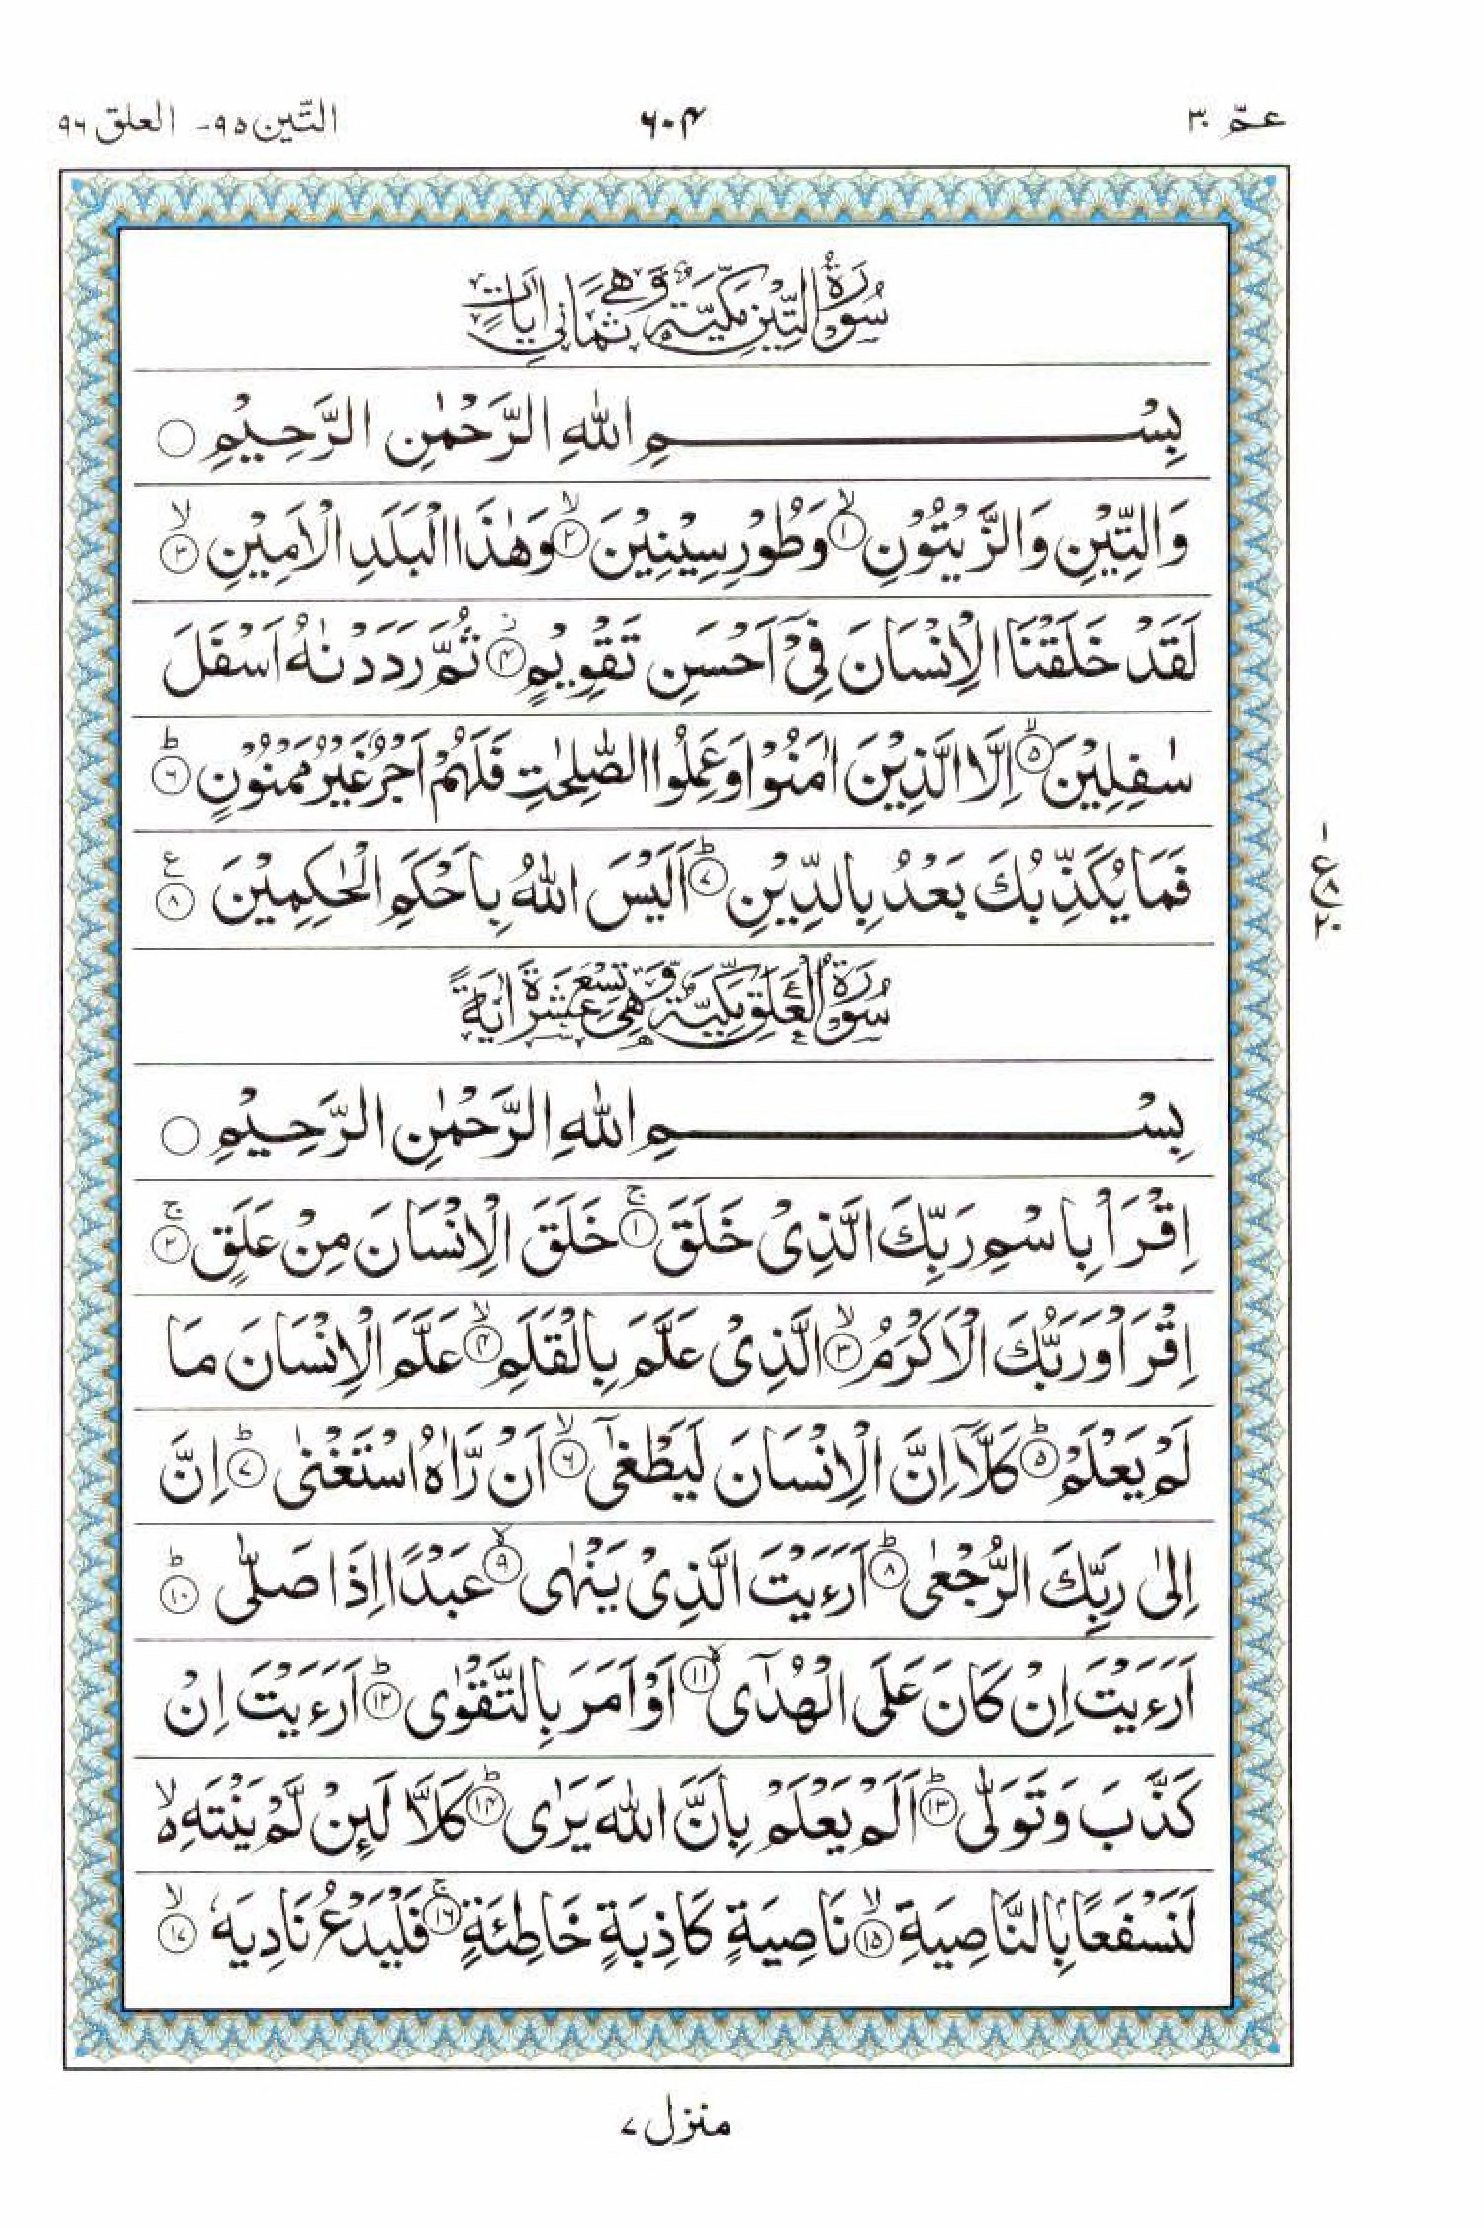 عمّ ٣٠
٦٠٤
التّين ٩٥ - العلق ٩٦
سُوْرَةُ التِّيْنِ مَكِّيَّةٌ وَّهِيَ ثَمَانِي اٰيَاتٍ
بِسْمِ اللّٰهِ الرَّحْمٰنِ الرَّحِيْمِ ○
وَالتِّيْنِ وَالزَّيْتُوْنِ ۙ﴿١﴾ وَطُوْرِ سِيْنِيْنَ ۙ﴿٢﴾ وَهٰذَا الْبَلَدِ الْاَمِيْنِ ۙ﴿٣﴾
لَقَدْ خَلَقْنَا الْاِنْسَانَ فِيْۤ اَحْسَنِ تَقْوِيْمٍ ؗ﴿٤﴾ ثُمَّ رَدَدْنٰهُ اَسْفَلَ
سٰفِلِيْنَ ۙ﴿٥﴾ اِلَّا الَّذِيْنَ اٰمَنُوْا وَعَمِلُوا الصّٰلِحٰتِ فَلَهُمْ اَجْرٌ غَيْرُ مَمْنُوْنٍ ؕ﴿٦﴾
فَمَا يُكَذِّبُكَ بَعْدُ بِالدِّيْنِ ؕ﴿٧﴾ اَلَيْسَ اللّٰهُ بِاَحْكَمِ الْحٰكِمِيْنَ ﴿٨﴾ ع
١
ع ٨
٢٠
سُوْرَةُ الْعَلَقِ مَكِّيَّةٌ وَّهِيَ تِسْعَ عَشَرَةَ اٰيَةً
بِسْمِ اللّٰهِ الرَّحْمٰنِ الرَّحِيْمِ ○
اِقْرَاْ بِاسْمِ رَبِّكَ الَّذِيْ خَلَقَ ۚ﴿١﴾ خَلَقَ الْاِنْسَانَ مِنْ عَلَقٍ ۚ﴿٢﴾
اِقْرَاْ وَرَبُّكَ الْاَكْرَمُ ۙ﴿٣﴾ الَّذِيْ عَلَّمَ بِالْقَلَمِ ۙ﴿٤﴾ عَلَّمَ الْاِنْسَانَ مَا
لَمْ يَعْلَمْ ؕ﴿٥﴾ كَلَّاۤ اِنَّ الْاِنْسَانَ لَيَطْغٰۤى ۙ﴿٦﴾ اَنْ رَّاٰهُ اسْتَغْنٰى ؕ﴿٧﴾ اِنَّ
اِلٰى رَبِّكَ الرُّجْعٰى ؕ﴿٨﴾ اَرَءَيْتَ الَّذِيْ يَنْهٰى ۙ﴿٩﴾ عَبْدًا اِذَا صَلّٰى ؕ﴿١٠﴾
اَرَءَيْتَ اِنْ كَانَ عَلَى الْهُدٰۤى ۙ﴿١١﴾ اَوْ اَمَرَ بِالتَّقْوٰى ؕ﴿١٢﴾ اَرَءَيْتَ اِنْ
كَذَّبَ وَتَوَلّٰى ؕ﴿١٣﴾ اَلَمْ يَعْلَمْ بِاَنَّ اللّٰهَ يَرٰى ؕ﴿١٤﴾ كَلَّا لَئِنْ لَّمْ يَنْتَهِ ۙ۬
لَنَسْفَعًا بِالنَّاصِيَةِ ۙ﴿١٥﴾ نَاصِيَةٍ كَاذِبَةٍ خَاطِئَةٍ ۚ﴿١٦﴾ فَلْيَدْعُ نَادِيَهٗ ۙ﴿١٧﴾
منزل ٧